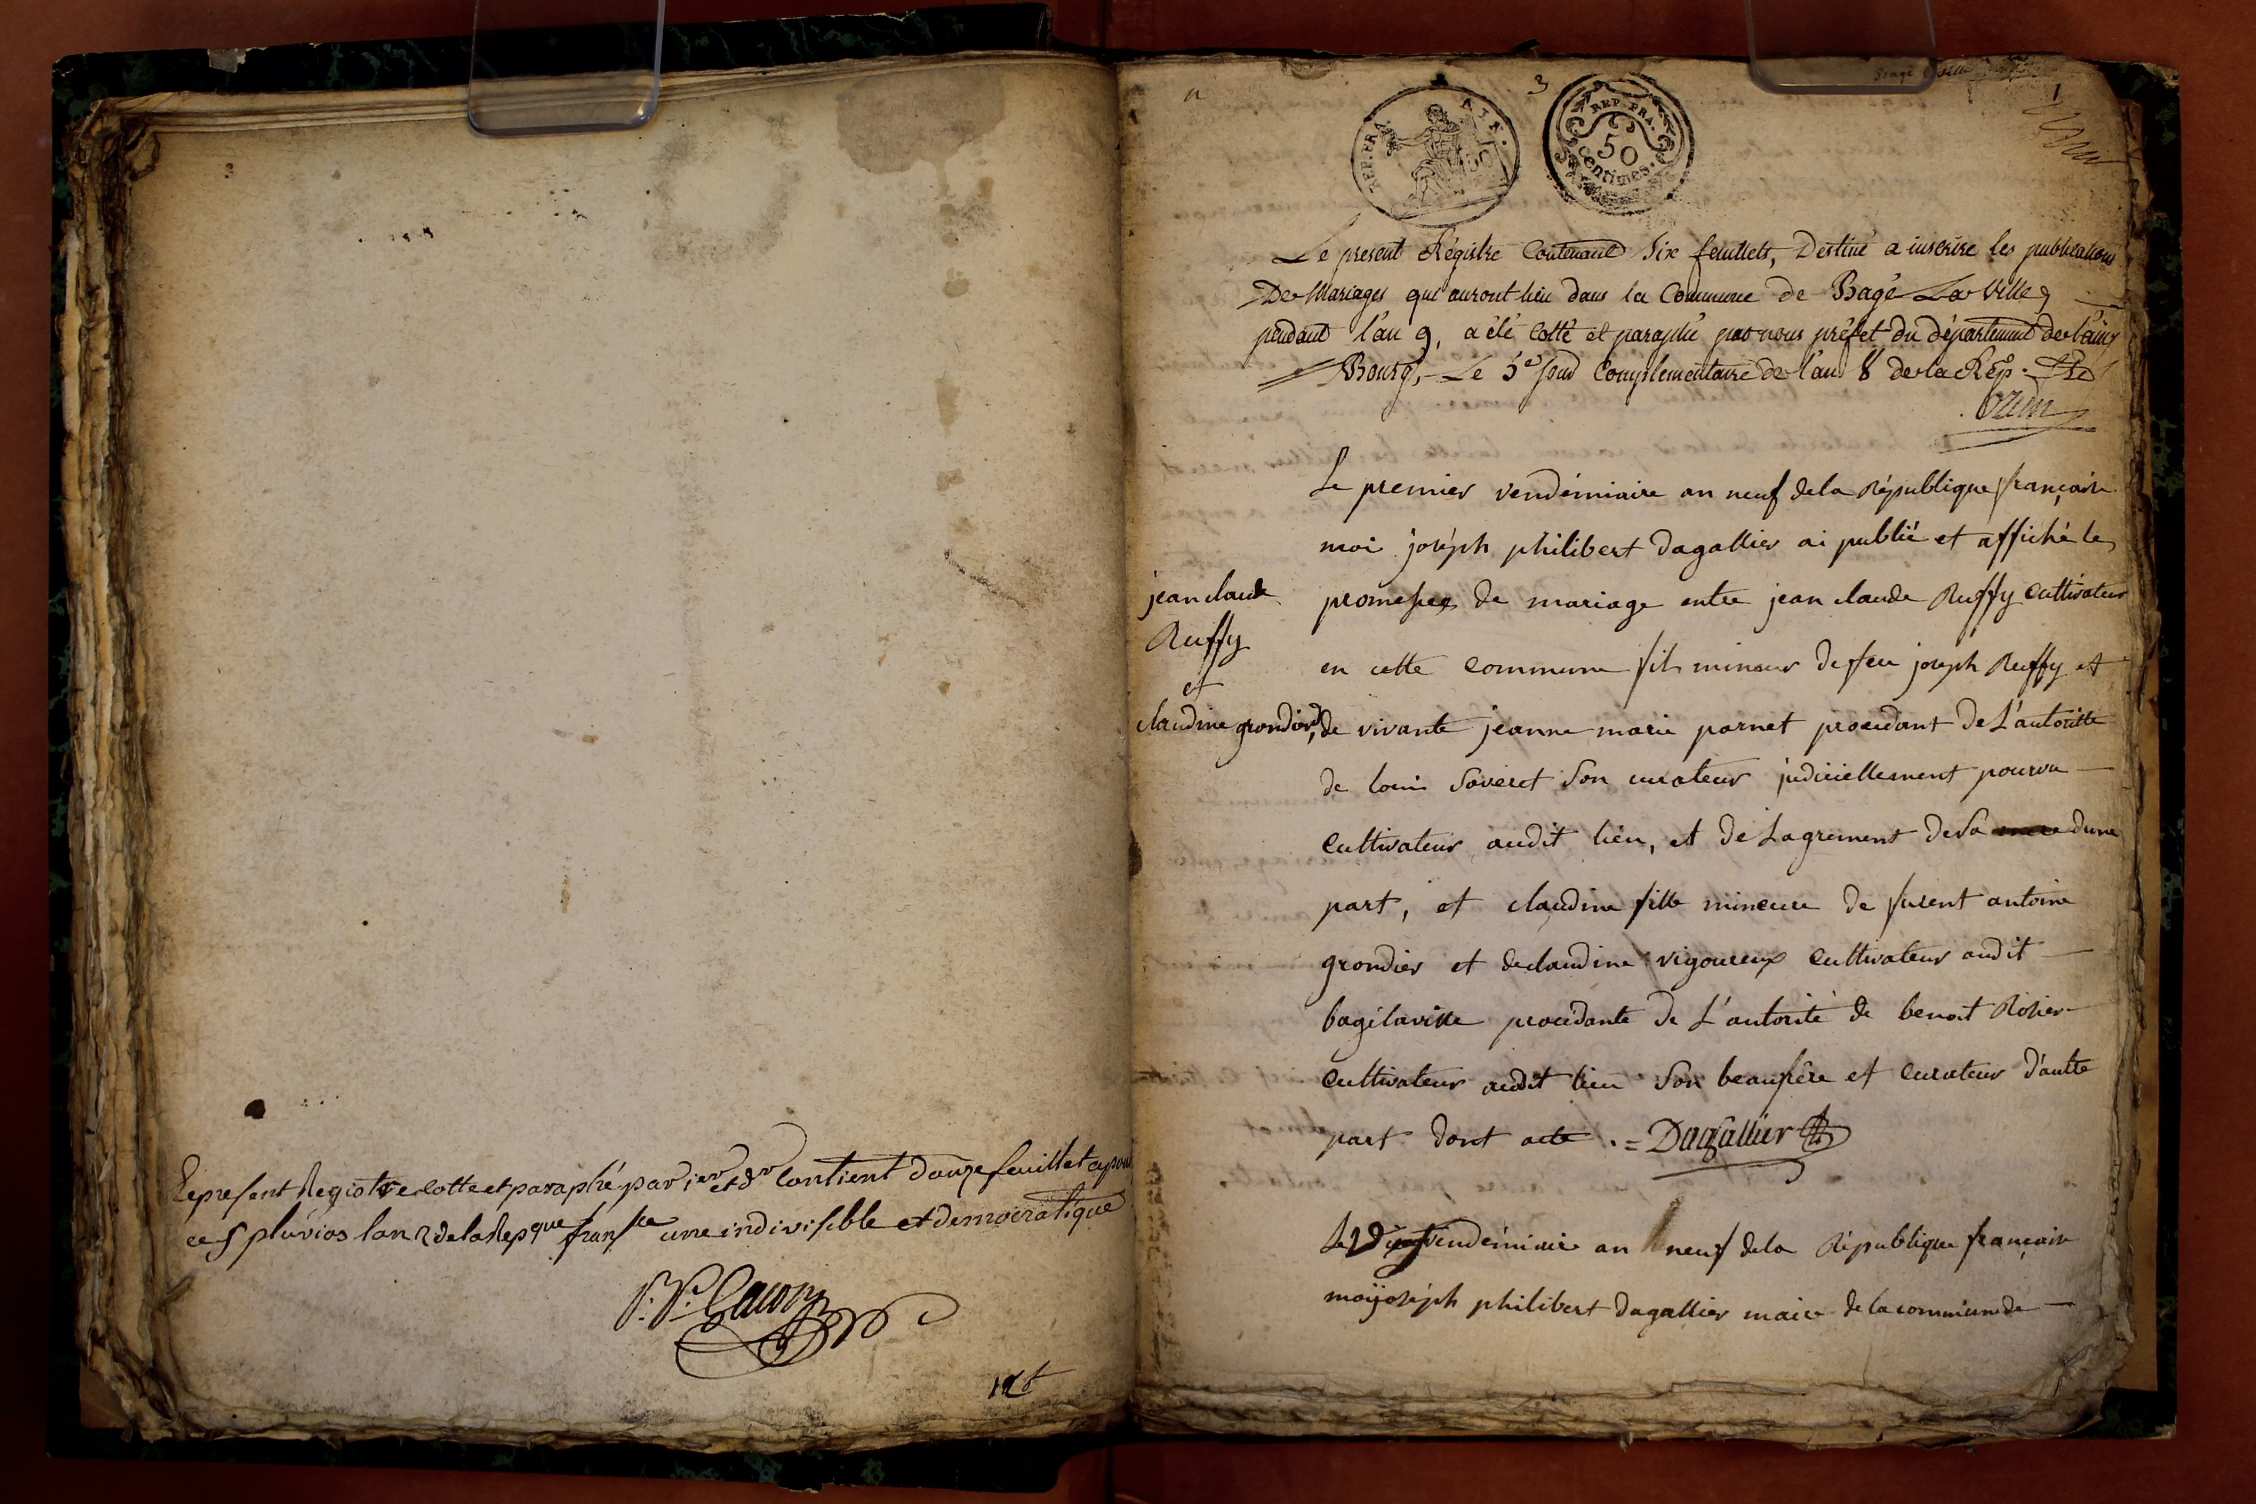 Le present Registre cotte et paraphé par 1er et dr Contient douze feuillet
ce 5 pluvios lan 2 de la Repque franse une indivisible et democratique
3
REP. FRA. AIN.
REP. FRA.
50
centimes.
1
Le present Régistre Contenant Six feuillets, Destiné a inscrire les publications
De Mariages qui auront lieu dans la Commune de Bagé La Ville,
pendant l'an 9, a été Cotté et paraphé par nous préfet du département de l'ain,
Bourg, Le 5e Jour Complémentaire de l'an 8 de la Rép.
Ozun
Le premier vendémiaire an neuf de la République française
moi joséph philibert dagallier ai publié et affiché le
jean claude
Ruffy
et
claudine grondier,
promesses de mariage entre jean claude Ruffy cultivateur
en cette commune fils mineur de feu joseph Ruffy et
de vivante jeanne marie parnet procedant de L'autoritte
de louis Saveret Son curateur judiciellement pourvu
cultivateur audit lieu, et de Lagrement de Sa mere dune
part, et claudine fille mineure de furent antoine
grondier et de claudine vigoureux cultivateur audit
bagélaville procedante de L'autorité de benoit
cultivateur audit lieu Son beaufrère et curateur d'autte
part dont acte . = Dagallier
Le vendémiaire an neuf de la République française
moi joséph philibert dagallier maire de la commune de